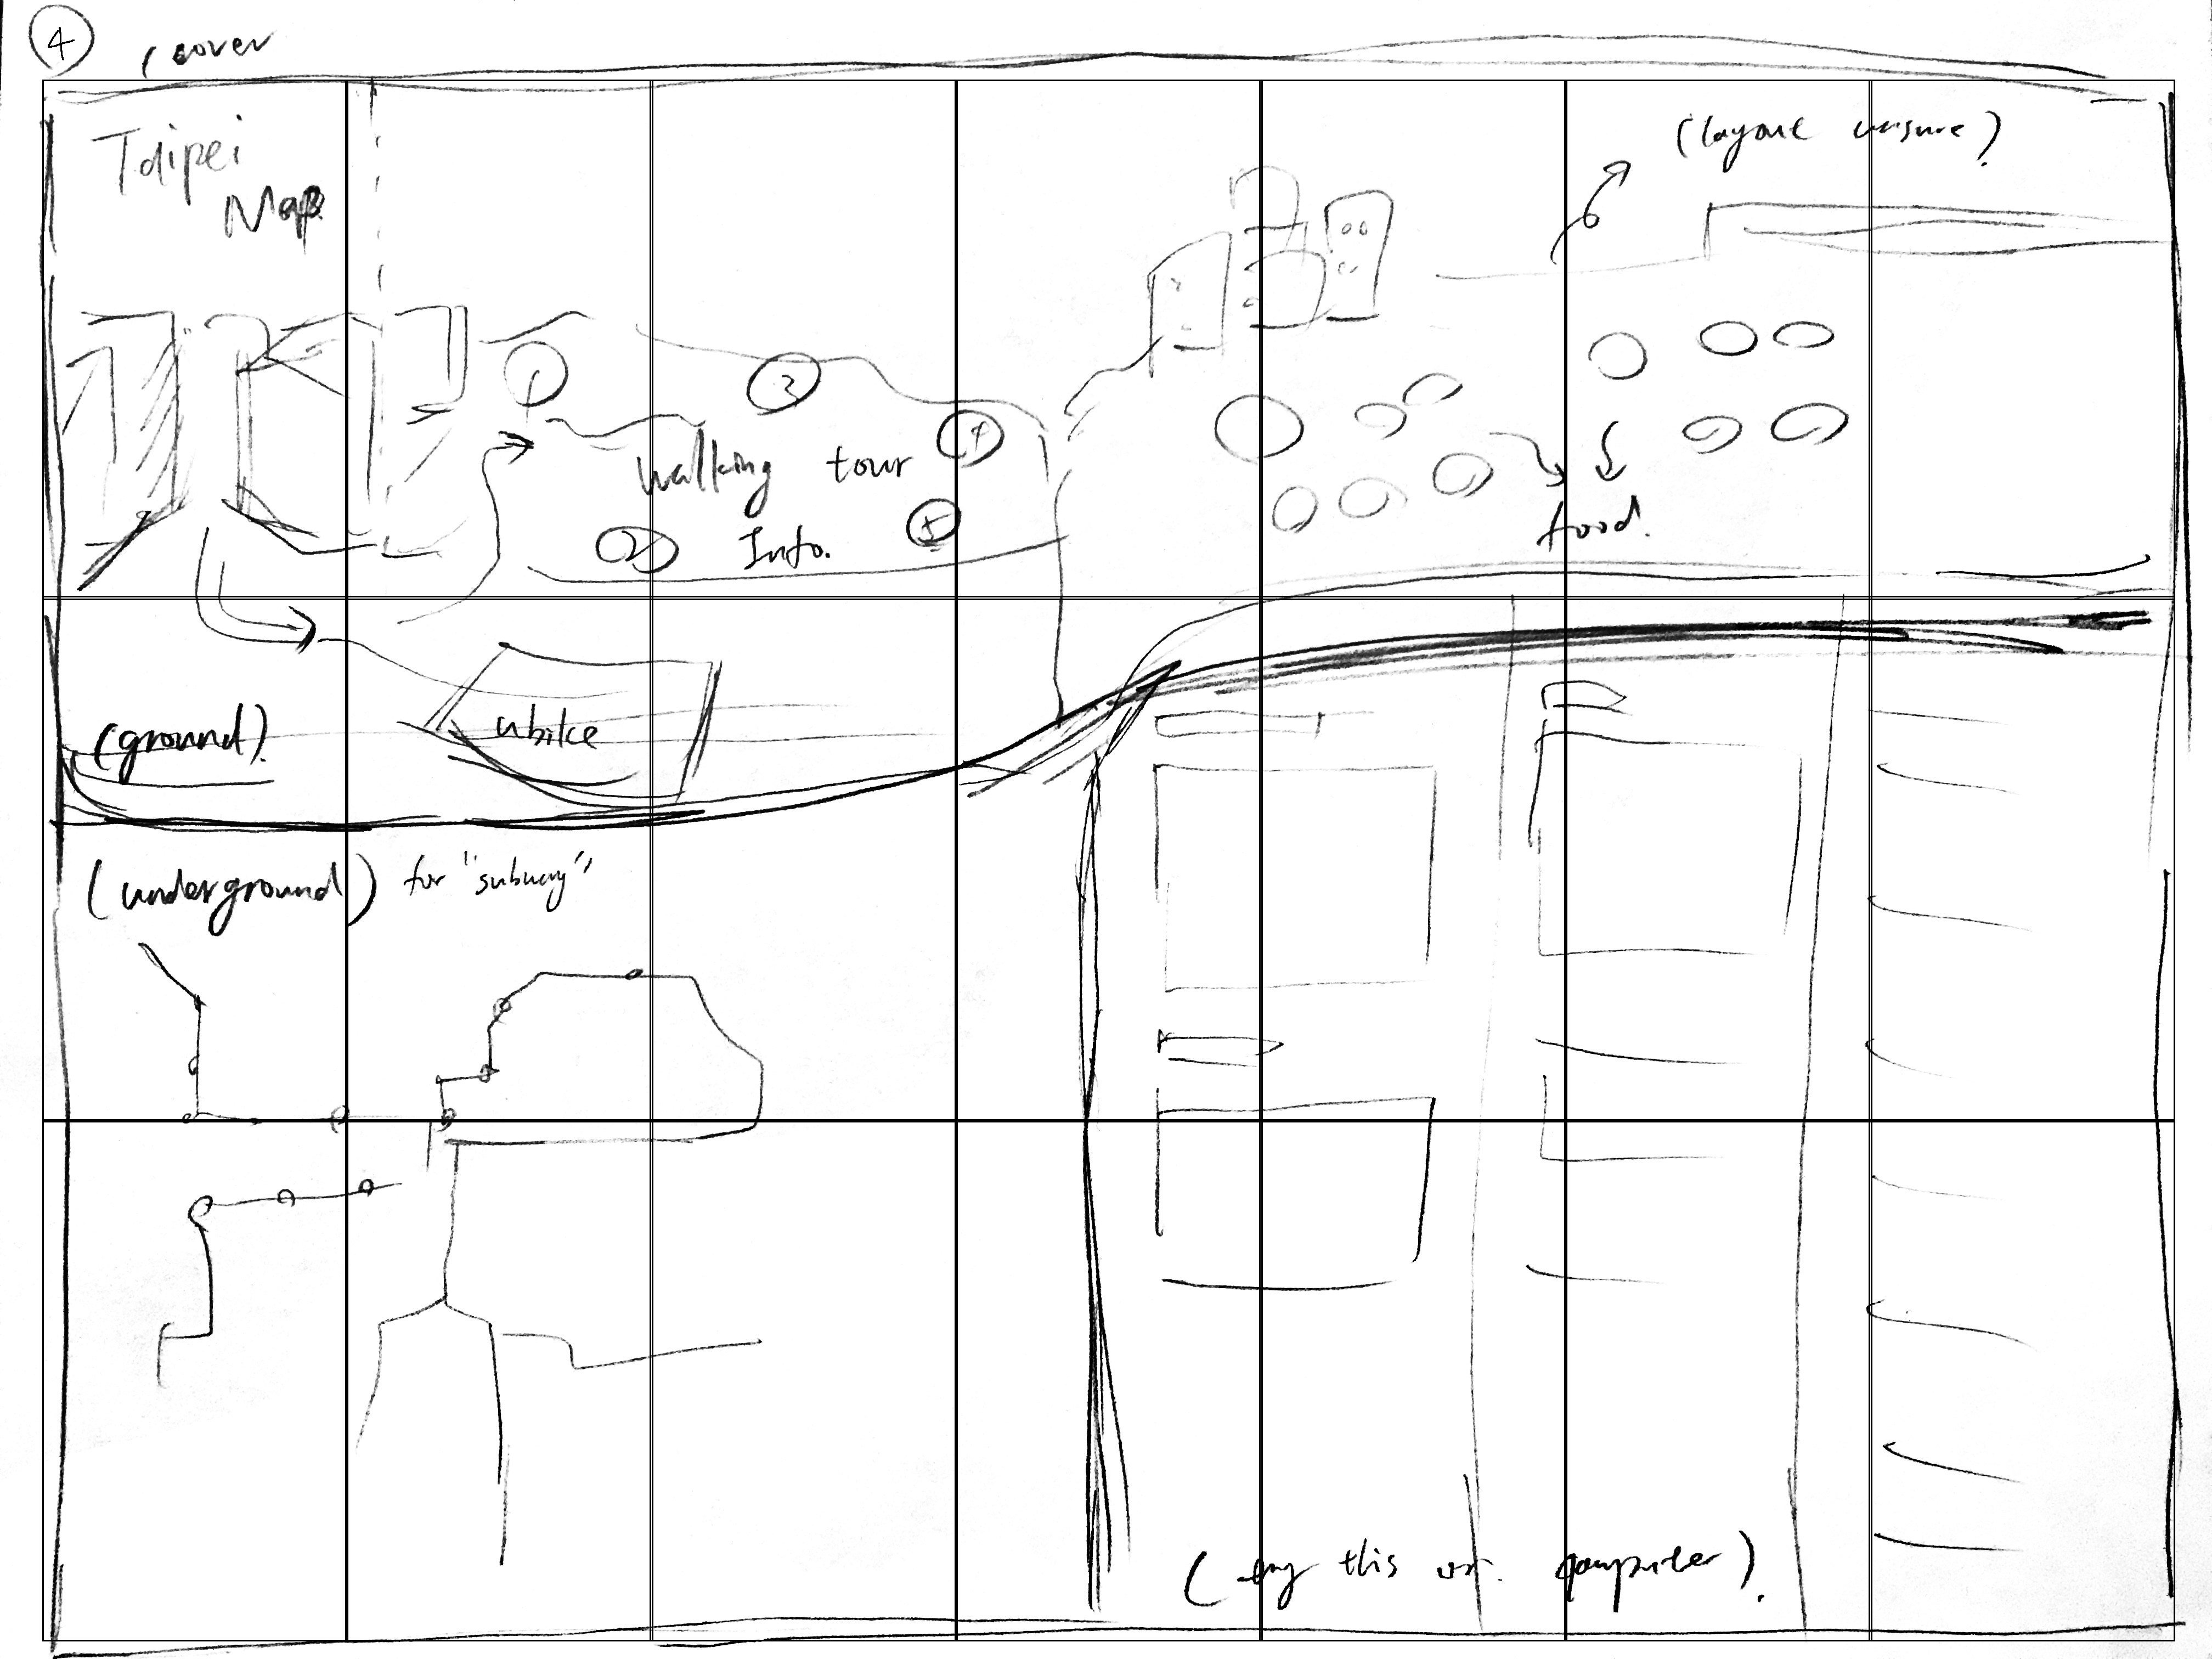 4
cover
Taipei
Map
(layout unsure)
1
3
4
walking tour
5
2
Info.
food.
(ground)
ubike
(underground) for "subway"
(try this on computer).